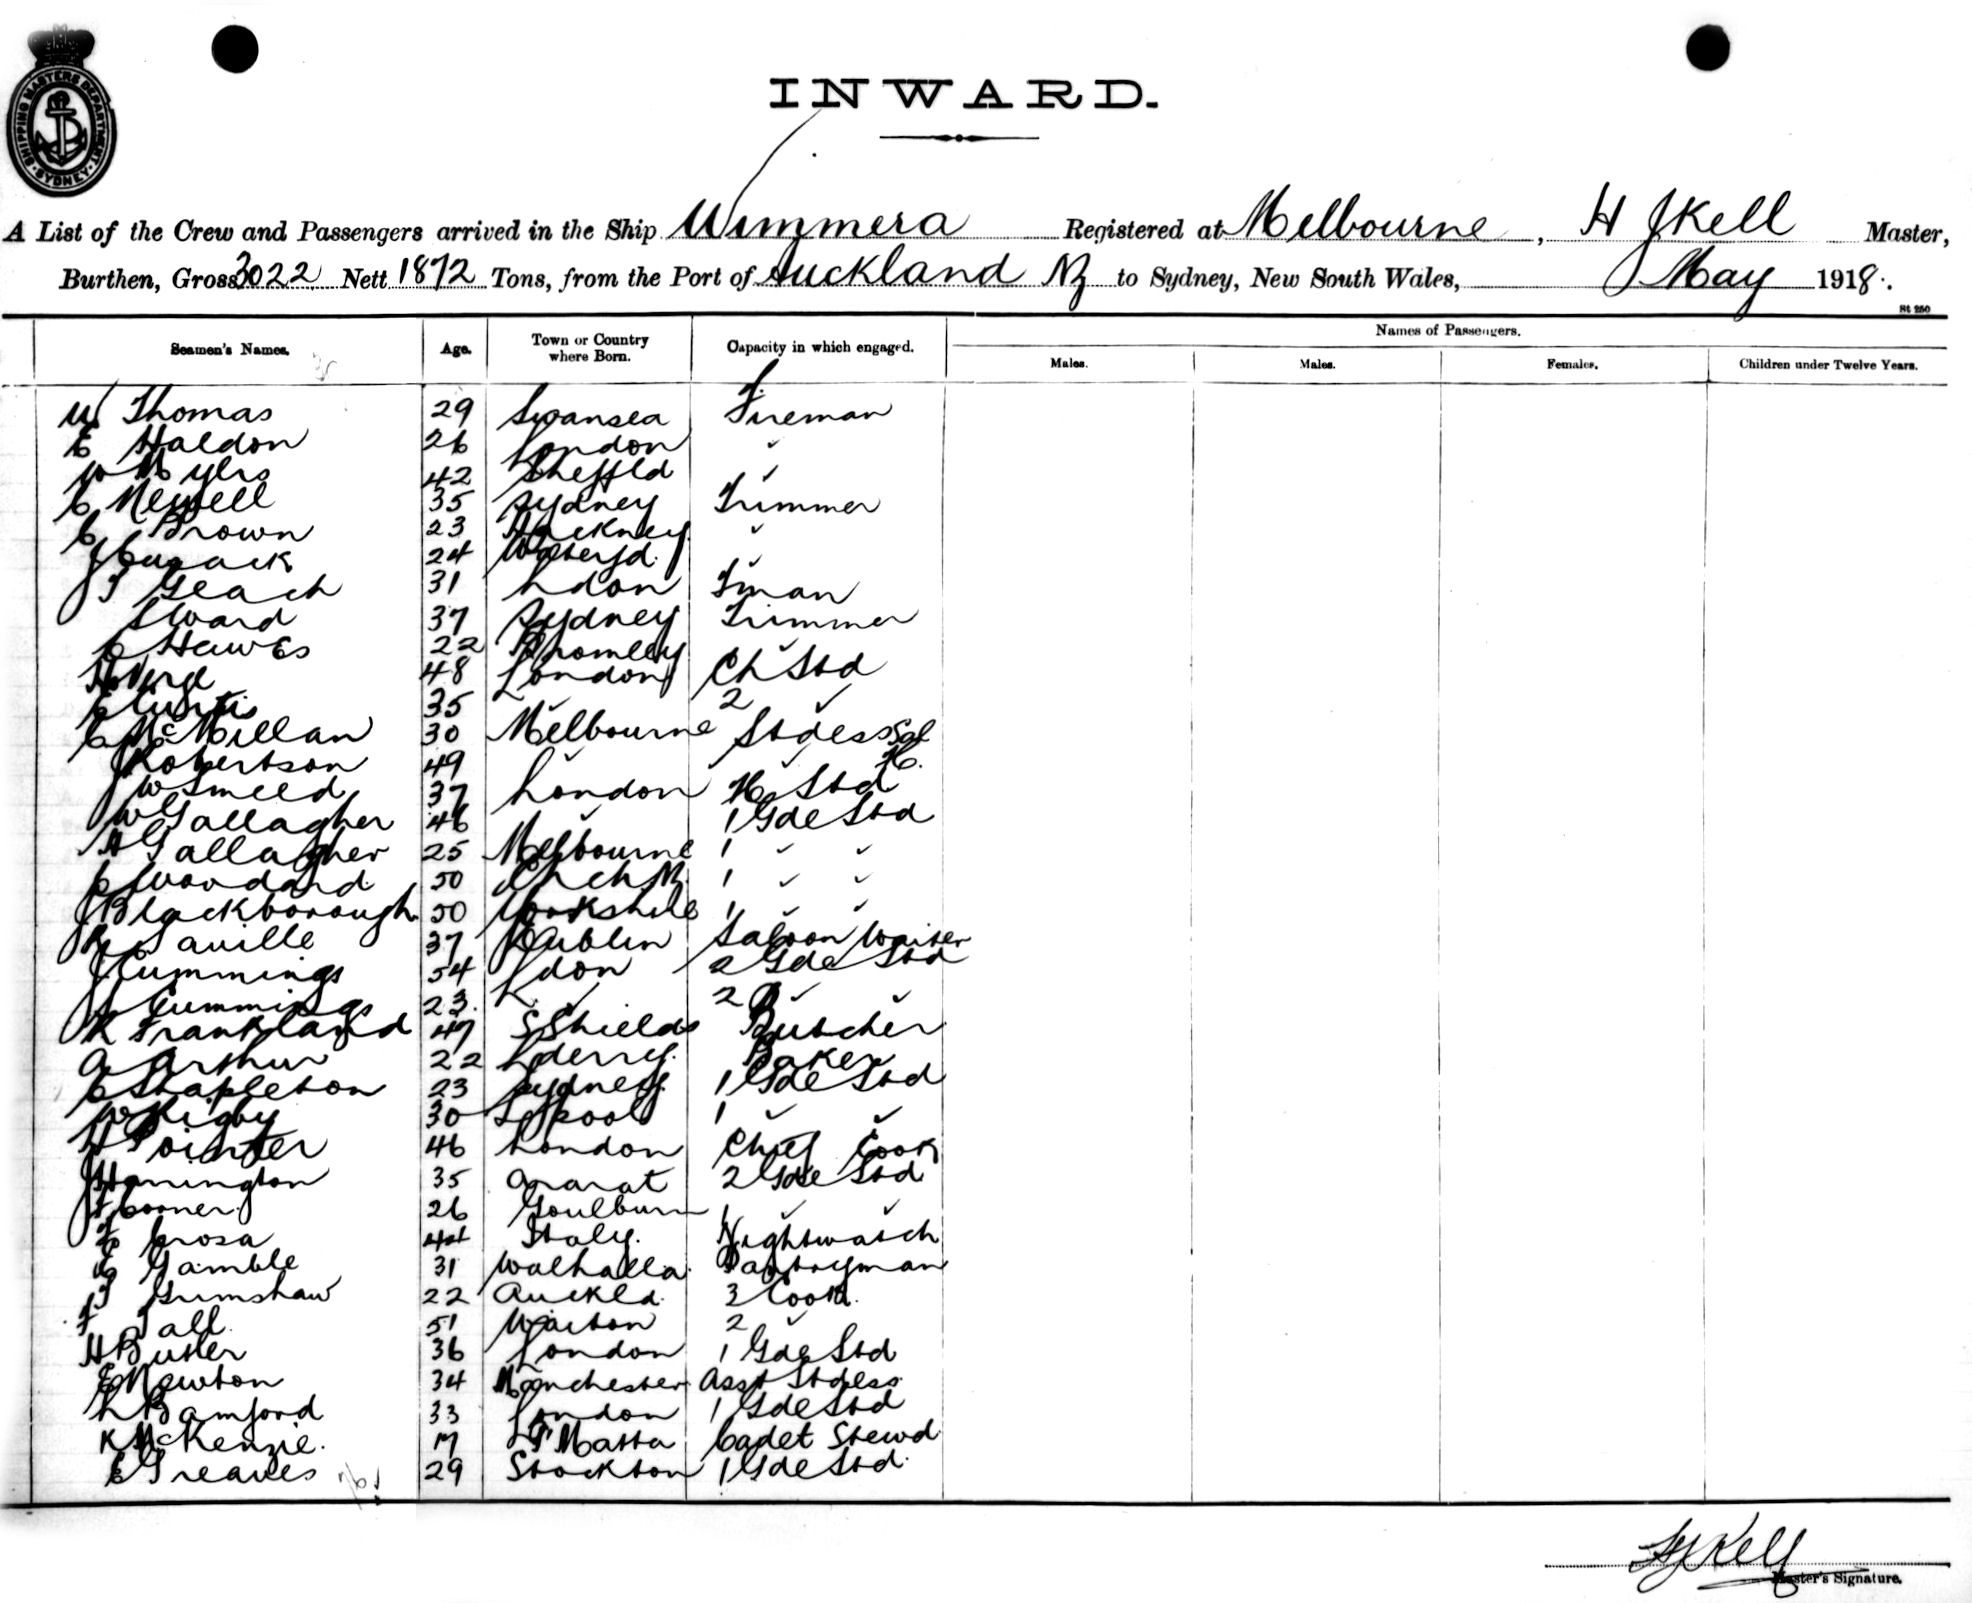 SHIPPING MASTERS DEPARTMENT
SYDNEY
INWARD.
A List of the Crew and Passengers arrived in the Ship Wimmera Registered at Melbourne, H J Kell Master,
Burthen, Gross 3022 Nett 1872 Tons, from the Port of Auckland NZ to Sydney, New South Wales, May 1918.
St 250
Seamen's Names. Age. Town or Country where Born. Capacity in which engaged. Names of Passengers.
Males. Males. Females. Children under Twelve Years.
W Thomas 29 Swansea Fireman
E Haldon 26 London ✓
W Mylrs 42 Sheffld ✓
C Newell 35 Sydney Trimmer
C Brown 23 Hackney ✓
J Cusack 24 Waterfd. ✓
J T Geach 31 Ldon Fman
S Ward 37 Sydney Trimmer
C Hawes 22 Bromley ✓
H Virge 48 London Ch Std
C Curtis 35 ✓ 2 ✓
C McMillan 30 Melbourne Stdess Sal
J Robertson 49 ✓ ✓ ✓ H.
J W Smeed 37 London H Std
W Gallagher 46 ✓ 1 Gde Std
H Gallagher 25 Melbourne 1 ✓ ✓
C Woodard 50 Chch NZ 1 ✓ ✓
J Blackborough 50 Yorkshire 1 ✓ ✓
R Saville 37 Dublin Saloon Waiter
J Cummings 54 Ldon 2 Gde Std
J S Cummings 23. ✓ 2 ✓ ✓
R Frankland 47 S Shields Butcher
A Arthur 22 Lderry. Baker
C Stapleton 23 Sydney. 1 Gde Std
W Rigby 30 Lpool 1 ✓ ✓
H Pointer 46 London Chief Cook
J Harrington 35 Ararat 2 Gde Std
J F Corner. 26 Goulburn 1 ✓ ✓
F Crosa 44 Italy. Nightwatch
E Gamble 31 Walhalla Pantryman
T Grimshaw 22 Auckld. 3 Cook.
F Tall. 51 Warton 2 ✓
H Butler 36 London 1 Gde Std
E Newton 34 Manchester Asst Stdess
L Bamford 33 London 1 Gde Std
K McKenzie. 17 P Matta Cadet Stewd
E Greaves 29 Stockton 1 Gde Std.
H J Kell
Master's Signature.